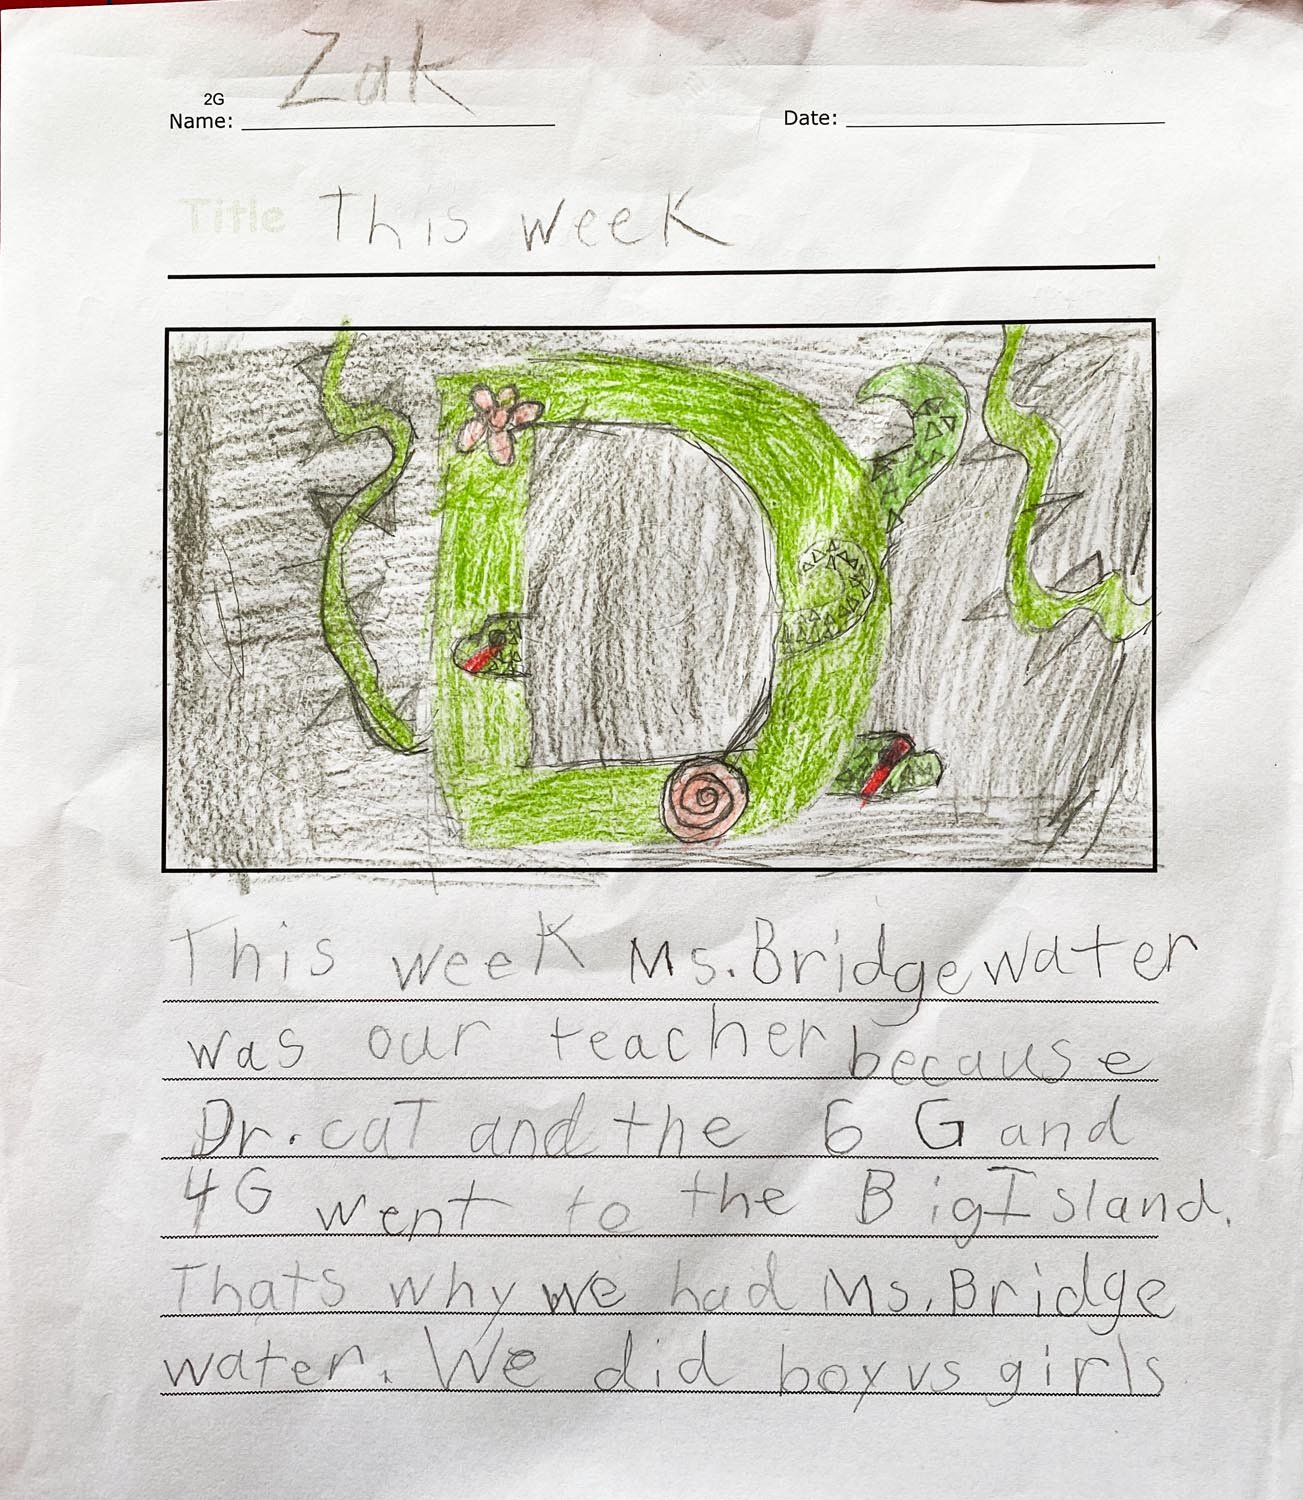 Zak
2G
Name: Date:
Title This week
This week Ms. Bridgewater
was our teacher because
Dr. cat and the 6 G and
4G went to the Big Island.
Thats why we had Ms. Bridge
water. We did boy vs girls